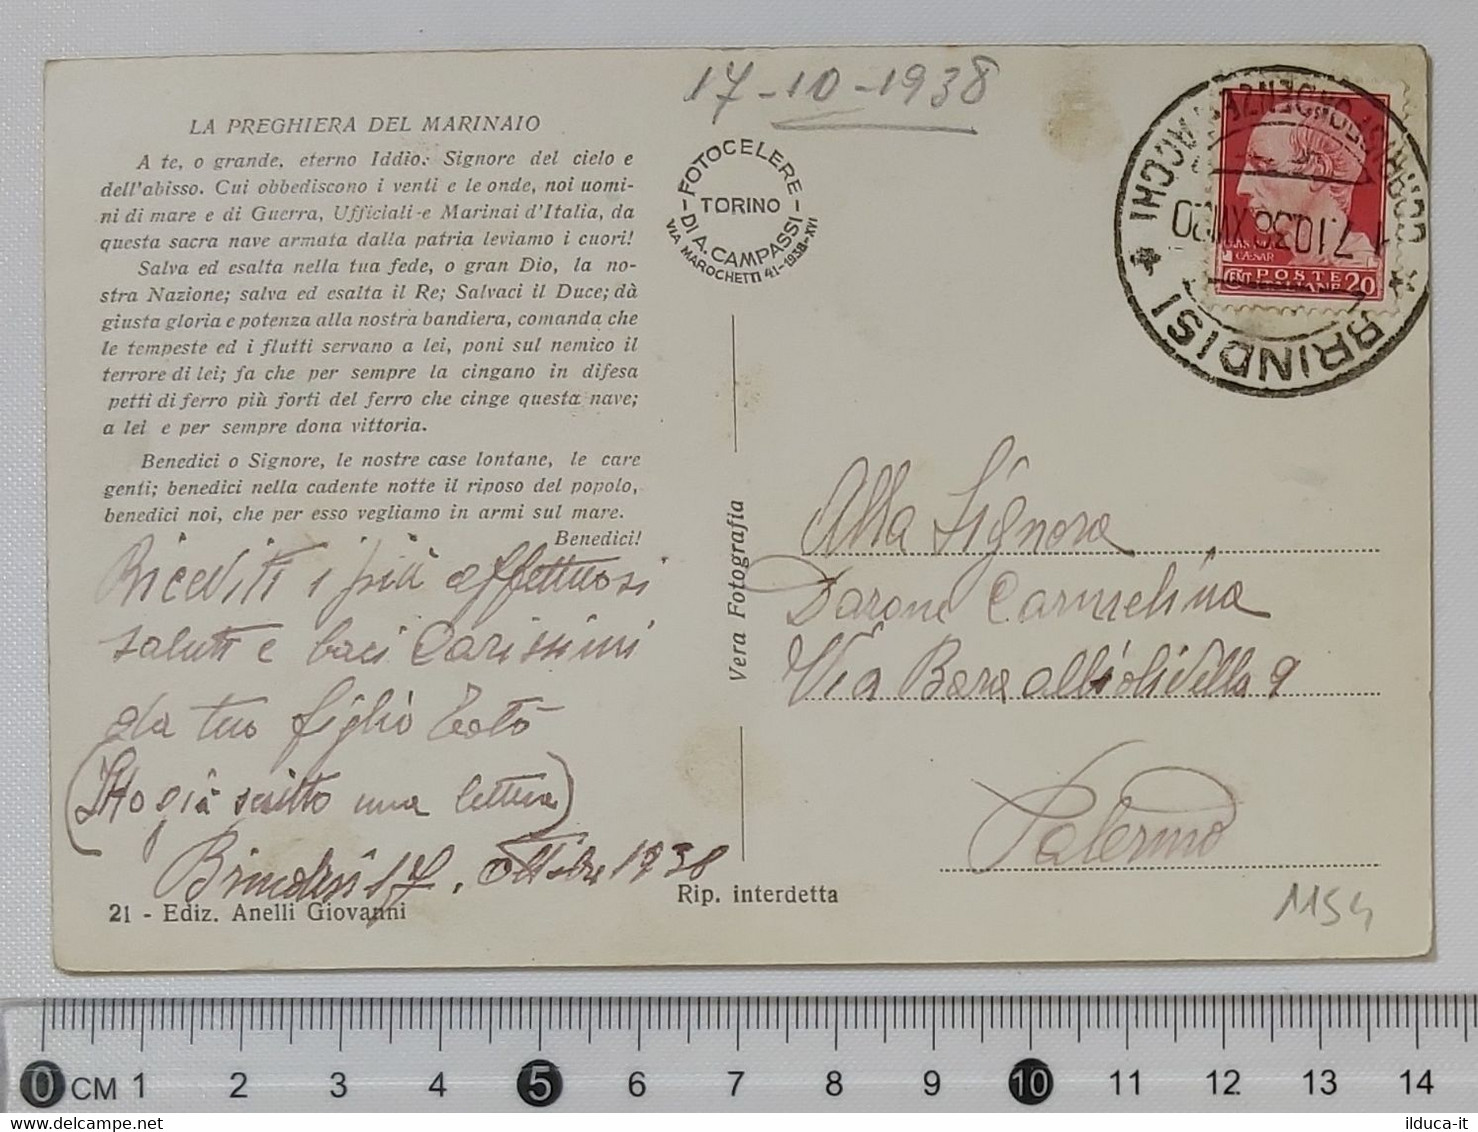 17-10-1938
LA PREGHIERA DEL MARINAIO
A te, o grande, eterno Iddio: Signore del cielo e
dell'abisso. Cui obbediscono i venti e le onde, noi uomi-
ni di mare e di Guerra, Ufficiali e Marinai d'Italia, da
questa sacra nave armata dalla patria leviamo i cuori!
Salva ed esalta nella tua fede, o gran Dio, la no-
stra Nazione; salva ed esalta il Re; Salvaci il Duce; dà
giusta gloria e potenza alla nostra bandiera, comanda che
le tempeste ed i flutti servano a lei, poni sul nemico il
terrore di lei; fa che per sempre la cingano in difesa
petti di ferro più forti del ferro che cinge questa nave;
a lei e per sempre dona vittoria.
Benedici o Signore, le nostre case lontane, le care
genti; benedici nella cadente notte il riposo del popolo,
benedici noi, che per esso vegliamo in armi sul mare.
Benedici!
Riceviti i più affettuosi
saluti e baci Carissimi
da tuo figlio Totò
(Ho già scritto una lettera)
Brindisi 17. Ottobre 1938
21 - Ediz. Anelli Giovanni
FOTOCELERE
TORINO
DI A. CAMPASSI
VIA MAROCHETTI 41-1938-XVI
Vera Fotografia
Rip. interdetta
CORRISPONDENZE PACCHI
BRINDISI
CAESAR
POSTE
CENT ITALIANE 20
Alla Signora
Darone Carmelina
Via Bara all'olivella 9
Palermo
1154
0 CM 1 2 3 4 5 6 7 8 9 10 11 12 13 14
ilduca-it